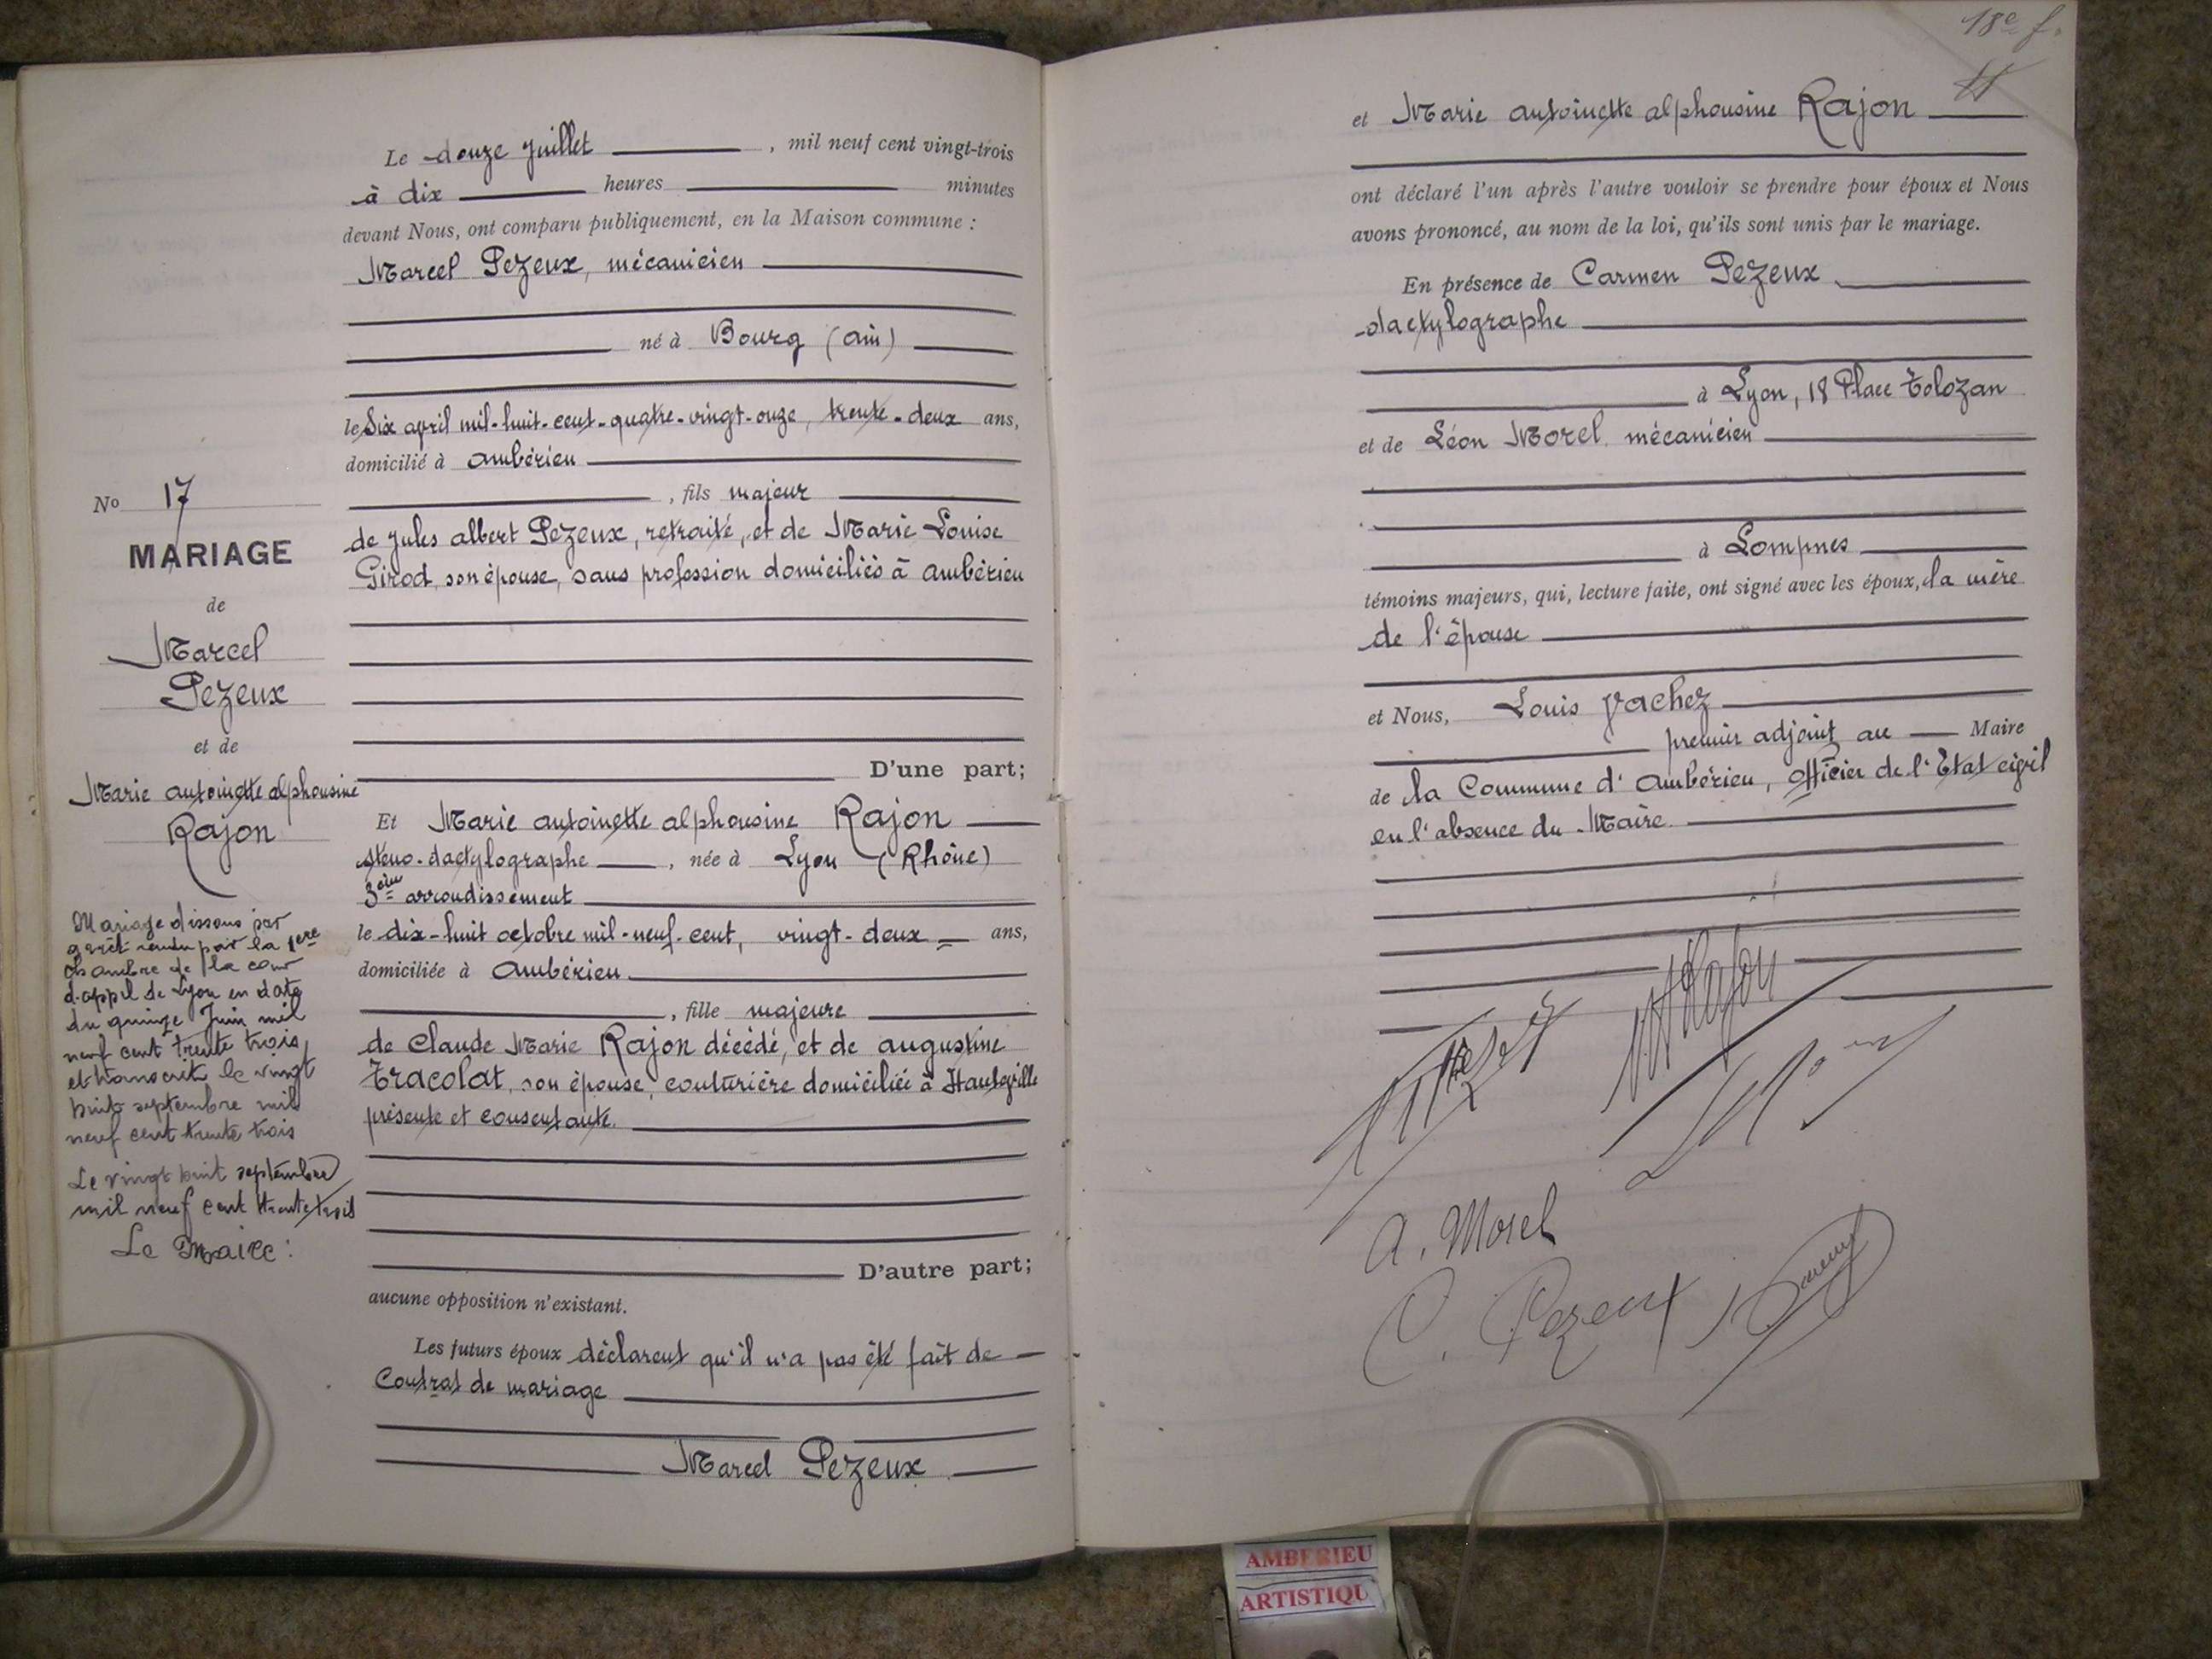 N° 17
MARIAGE
de
Marcel
Pezeux
et de
Marie antoinette alphonsine
Rajon
Mariage dissous par
arrêt rendu par la 1ere
chambre de la cour
d'appel de Lyon en date
du quinze Juin mil
neuf cent trente trois
et transcrit le vingt
huit septembre mil
neuf cent trente trois
Le vingt huit septembre
mil neuf cent trente trois
Le Maire :
Le douze juillet , mil neuf cent vingt-trois
à dix heures minutes
devant Nous, ont comparu publiquement, en la Maison commune :
Marcel Pezeux, mécanicien
né à Bourg (ain)
le Six avril mil-huit-cent-quatre-vingt-onze, trente-deux ans,
domicilié à ambérieu
, fils majeur
de jules albert Pezeux, retraité, et de Marie Louise
Girod, son épouse, sans profession domiciliés à ambérieu
D'une part;
Et Marie antoinette alphonsine Rajon
steno-dactylographe , née à Lyon (Rhône)
3eme arrondissement
le dix-huit octobre mil-neuf-cent, vingt-deux ans,
domiciliée à ambérieu
, fille majeure
de Claude Marie Rajon décédé, et de augustine
Tracolat, son épouse, couturière domiciliée à Hauteville
présente et consentante.
D'autre part;
aucune opposition n'existant.
Les futurs époux déclarent qu'il n'a pas été fait de
Contrat de mariage
Marcel Pezeux
18e f.
et Marie antoinette alphonsine Rajon
ont déclaré l'un après l'autre vouloir se prendre pour époux et Nous
avons prononcé, au nom de la loi, qu'ils sont unis par le mariage.
En présence de Carmen Pezeux
dactylographe
à Lyon, 18 Place Tolozan
et de Léon Morel, mécanicien
à Lompnes
témoins majeurs, qui, lecture faite, ont signé avec les époux, la mère
de l'épouse
et Nous, Louis Vachez
premier adjoint au Maire
de la Commune d'ambérieu, officier de l'Etat civil
en l'absence du Maire.
MA Rajon
A. Morel
C. Pezeux
AMBERIEU
ARTISTIQU